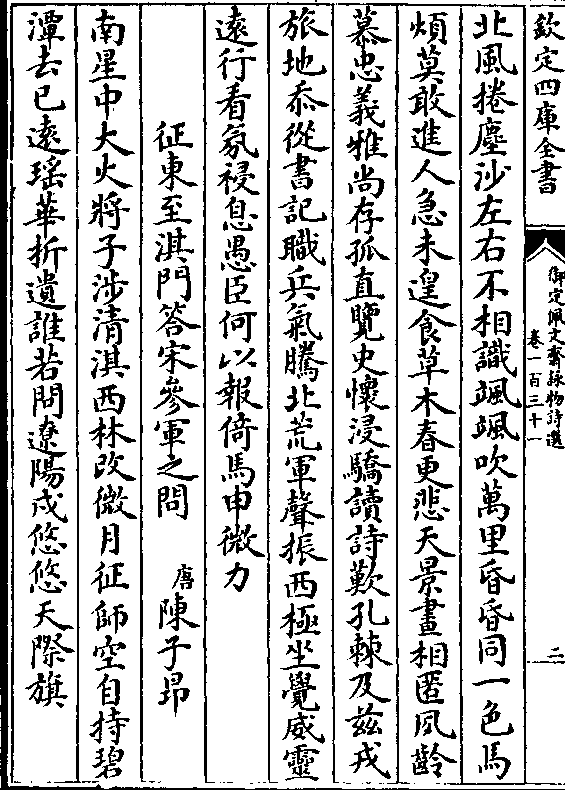 欽定四庫全書
御定佩文齋詠物詩選
卷一百三十一
二
北風捲塵沙左右不相識颯颯吹萬里昏昏同一色馬
煩莫敢進人急未遑食草木春更悲天景晝相匿夙齡
慕忠義雅尚存孤直覽史懷浸驕讀詩歎孔棘及茲戎
旅地忝從書記職兵氣騰北荒軍聲振西極坐覺威靈
遠行看氛祲息愚臣何以報倚馬申微力
征東至淇門答宋參軍之問
唐陳子昻
南星中大火將子涉清淇西林改微月征師空自持碧
潭去已遠瑤華折遺誰若問遼陽戍悠悠天際旗